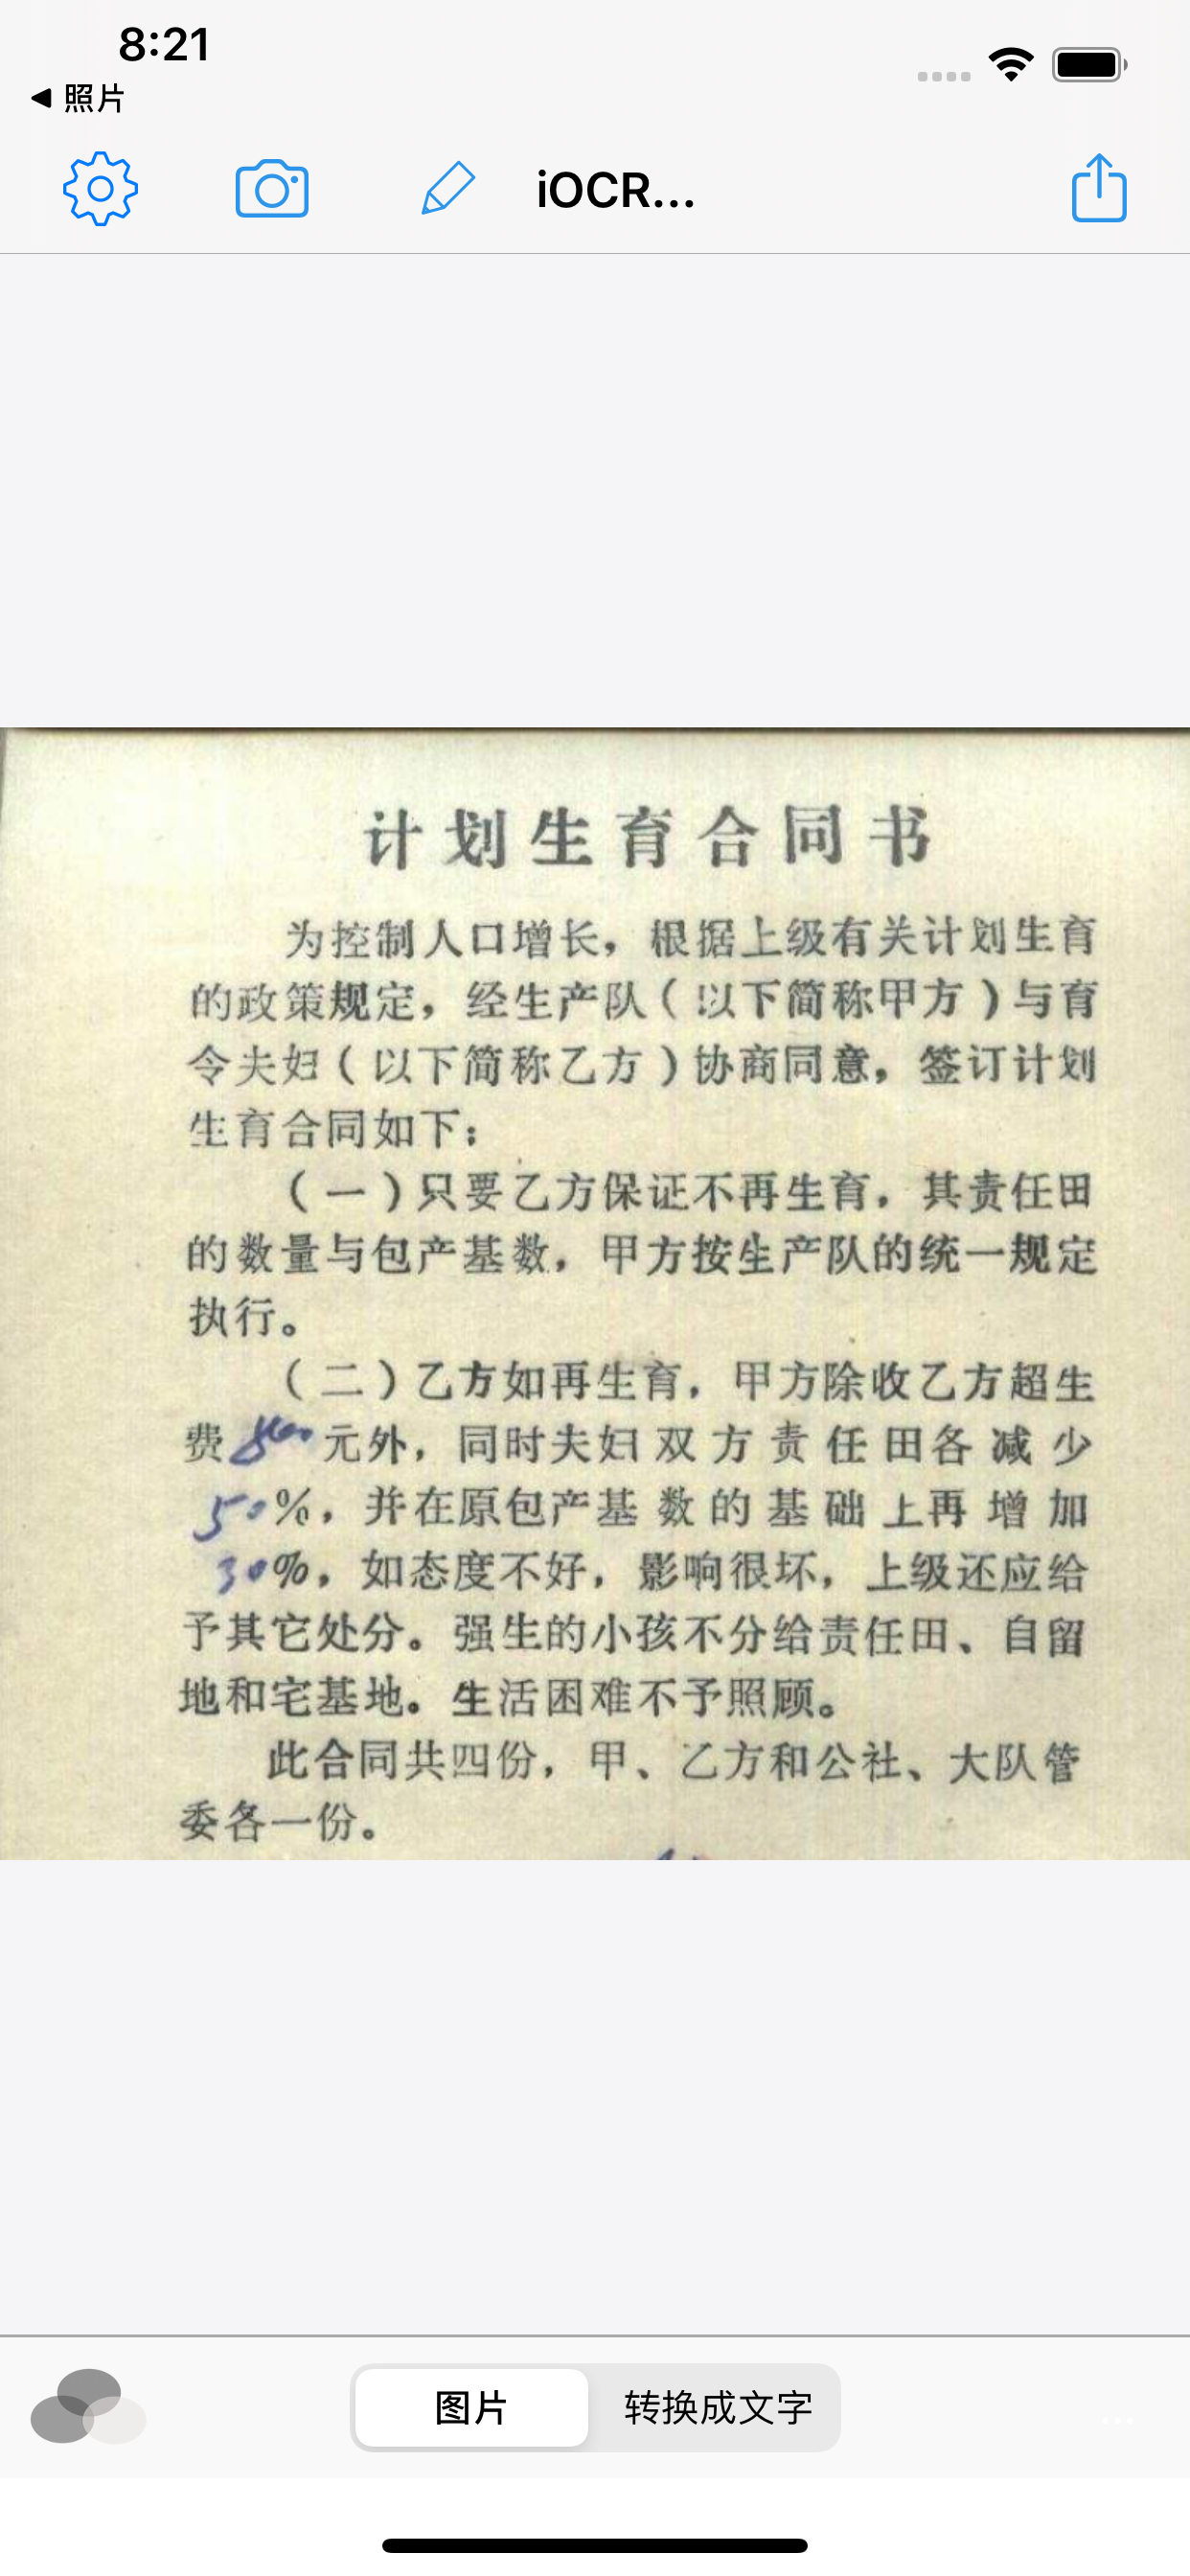 8:21
照片
iOCR...
计划生育合同书
为控制人口增长，根据上级有关计划生育
的政策规定，经生产队（以下简称甲方）与育
令夫妇（以下简称乙方）协商同意，签订计划
生育合同如下：
（一）只要乙方保证不再生育，其责任田
的数量与包产基数，甲方按生产队的统一规定
执行。
（二）乙方如再生育，甲方除收乙方超生
费800元外，同时夫妇双方责任田各减少
50%，并在原包产基数的基础上再增加
30%，如态度不好，影响很坏，上级还应给
予其它处分。强生的小孩不分给责任田、自留
地和宅基地。生活困难不予照顾。
此合同共四份，甲、乙方和公社、大队管
委各一份。
图片
转换成文字